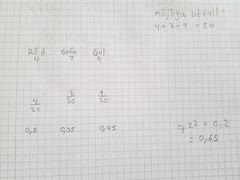 möjliga utfall:
4+7+9 = 20
Röd Grön Gul
4 7 9
4/20 7/20 9/20
0,2 0,35 0,45
+ 0,2
= 0,65